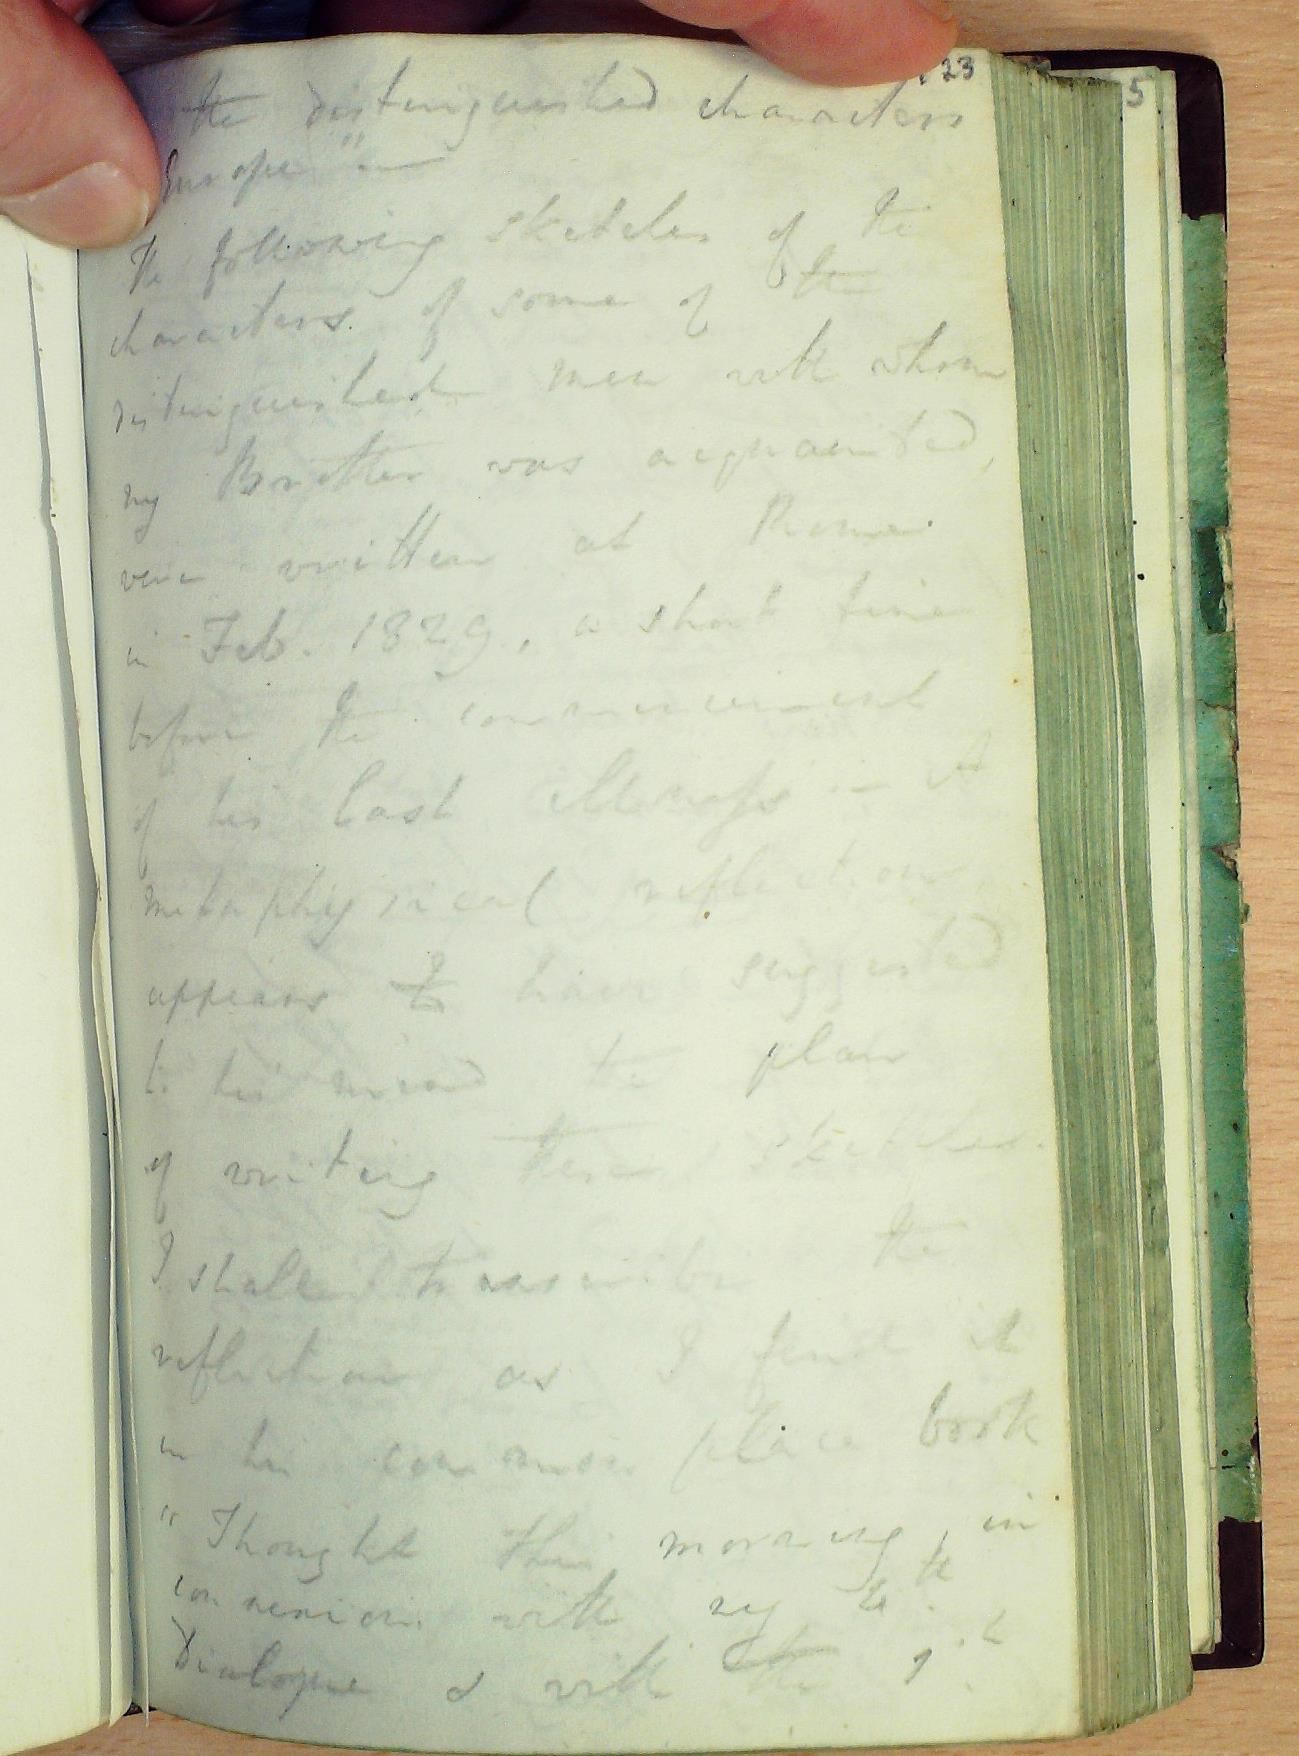 123
5
the distinguished characters
Europe" —
The following sketches of the
characters of some of the
distinguished men with whom
my Brother was acquainted,
were written at Rome
in Feb. 1829, a short time
before the commencement
of his last illness — A
metaphysical reflection
appears to have suggested
to his mind the plan
of writing these sketches.
I shall transcribe the
reflection as I find it
in his common place book
"Thought this morning, in
connexion with my
Dialogue & with the